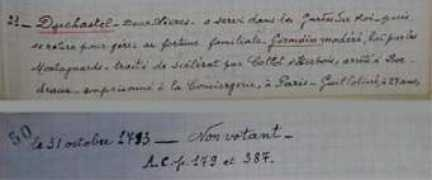 23 - Duchastel - Deux Sèvres - a servi dans les Gardes du Roi - puis
se retira pour gérer sa fortune familiale - Girondin modéré, haï par les
Montagnards - traité de scélérat par Collot d'Herbois, arrêté à Bor-
deaux - emprisonné à la Conciergerie, à Paris - Guillotiné à 27 ans,
50 le 31 octobre 1793 — Non votant -
A.C. f. 179 et 387.